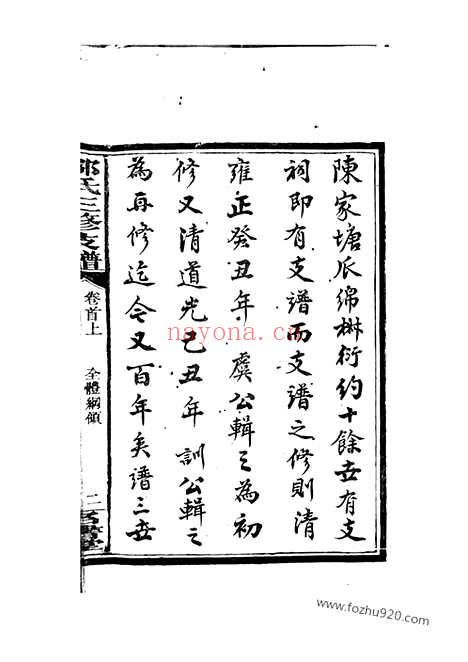 陳家塘瓜綿椒衍約十餘世有支
祠即有支譜而支譜之修則清
雍正癸丑年 虞公輯之為初
修又清道光己丑年 訓公輯之
為再修迄今又百年矣譜三世
氏三修支譜
卷首上
全體綱領
二
nayona.cn
www.fozhu920.com